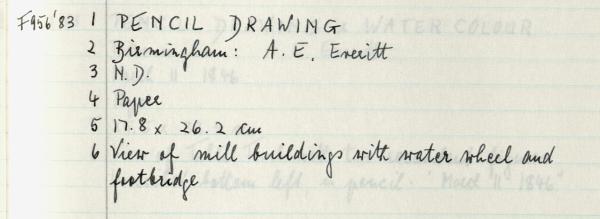 F956'83 1 PENCIL DRAWING
2 Birmingham: A. E. Everitt
3 N.D.
4 Paper
5 17.8 x 26.2 cm
6 View of mill buildings with water wheel and
footbridge